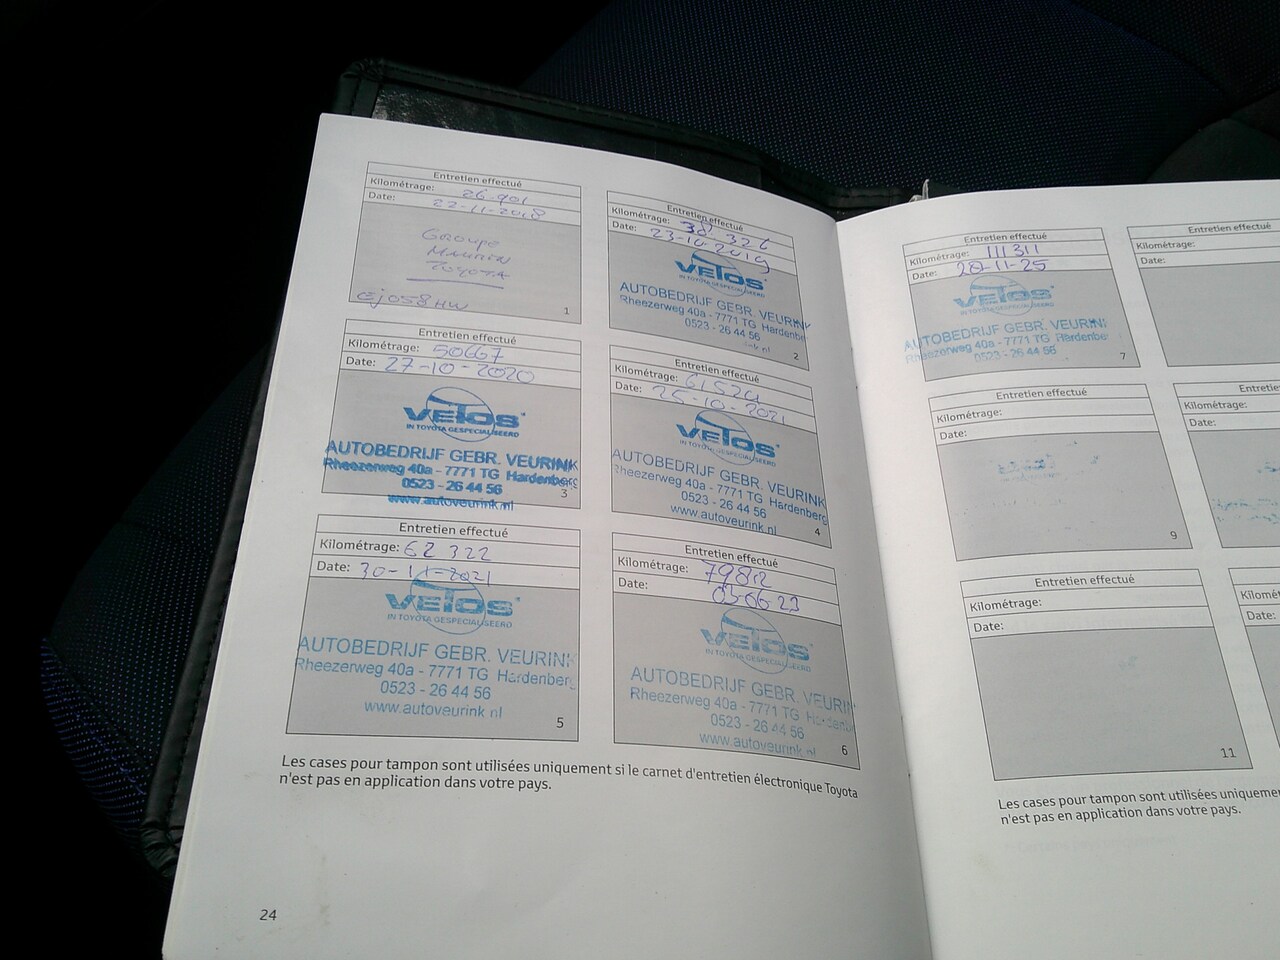 Entretien effectué
Kilométrage: 26.901
Date: 22-11-2018
Groupe
Maurin
Toyota
EJ058HW
1
Entretien effectué
Kilométrage: 38 326
Date: 23-10-2019
VETOS
IN TOYOTA GESPECIALISEERD
AUTOBEDRIJF GEBR. VEURINK
Rheezerweg 40a - 7771 TG Hardenbe
0523 - 26 44 56
ink.nl
2
Entretien effectué
Kilométrage: 50667
Date: 27-10-2020
VETOS
IN TOYOTA GESPECIALISEERD
AUTOBEDRIJF GEBR. VEURINK
Rheezerweg 40a - 7771 TG Hardenberg
0523 - 26 44 56
www.autoveurink.nl
3
Entretien effectué
Kilométrage: 61524
Date: 25-10-2021
VETOS
IN TOYOTA GESPECIALISEERD
AUTOBEDRIJF GEBR. VEURINK
Rheezerweg 40a - 7771 TG Hardenberg
0523 - 26 44 56
www.autoveurink.nl
4
Entretien effectué
Kilométrage: 62 322
Date: 30-11-2021
VETOS
IN TOYOTA GESPECIALISEERD
AUTOBEDRIJF GEBR. VEURINK
Rheezerweg 40a - 7771 TG Hardenberg
0523 - 26 44 56
www.autoveurink.nl
5
Entretien effectué
Kilométrage: 79812
Date: 03-06-23
VETOS
IN TOYOTA GESPECIALISEERD
AUTOBEDRIJF GEBR. VEURIN
Rheezerweg 40a - 7771 TG Hardenb
0523 - 26 44 56
www.autoveurink.nl
6
Les cases pour tampon sont utilisées uniquement si le carnet d'entretien électronique Toyota
n'est pas en application dans votre pays.
24
Entretien effectué
Kilométrage: 111311
Date: 20-11-25
VETOS
IN TOYOTA GESPECIALISEERD
AUTOBEDRIJF GEBR. VEURINK
Rheezerweg 40a - 7771 TG Hardenbe
0523 - 26 44 56
7
Entretien effectué
Kilométrage:
Date:
Entretien effectué
Kilométrage:
Date:
9
Entretie
Kilométrage:
Date:
Entretien effectué
Kilométrage:
Date:
11
Kilomét
Date:
Les cases pour tampon sont utilisées uniquemen
n'est pas en application dans votre pays.